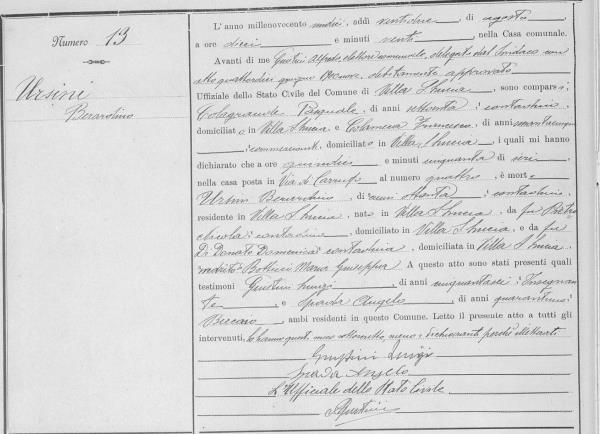 Numero 13
Ursini
Berardino
L'anno millenovecento undici, addì ventidue di agosto
a ore dieci e minuti venti nella Casa comunale.
Avanti di me Giustini Alfredo, delegato dal Sindaco con
atto quattordici giugno debitamente approvato
Uffiziale dello Stato Civile del Comune di Villa S. Lucia, sono comparsi:
Colagrande Pasquale, di anni settanta, contadino,
domiciliato in Villa S. Lucia e Francesco, di anni
commerciante, domiciliato in Villa S. Lucia, i quali mi hanno
dichiarato che a ore quindici e minuti cinquanta di ieri,
nella casa posta in Via al numero quattro, è morto
Ursini Berardino, di anni ottanta, contadino,
residente in Villa S. Lucia, nato in Villa S. Lucia, da fu Pietro
Nicola, contadino, domiciliato in Villa S. Lucia, e da fu
Di Donato Domenica, contadina, domiciliata in Villa S. Lucia,
marito Maria Giuseppa. A questo atto sono stati presenti quali
testimoni Giustini Luigi, di anni cinquantasei, Insegnan
te, e Spada Angelo, di anni quarantuno,
Beccaio, ambi residenti in questo Comune. Letto il presente atto a tutti gli
intervenuti, lo hanno questi meco sottoscritto meno i dichiaranti perchè illetterati
Giustini Luigi
Spada Angelo
L'Ufficiale dello Stato Civile
AGiustini